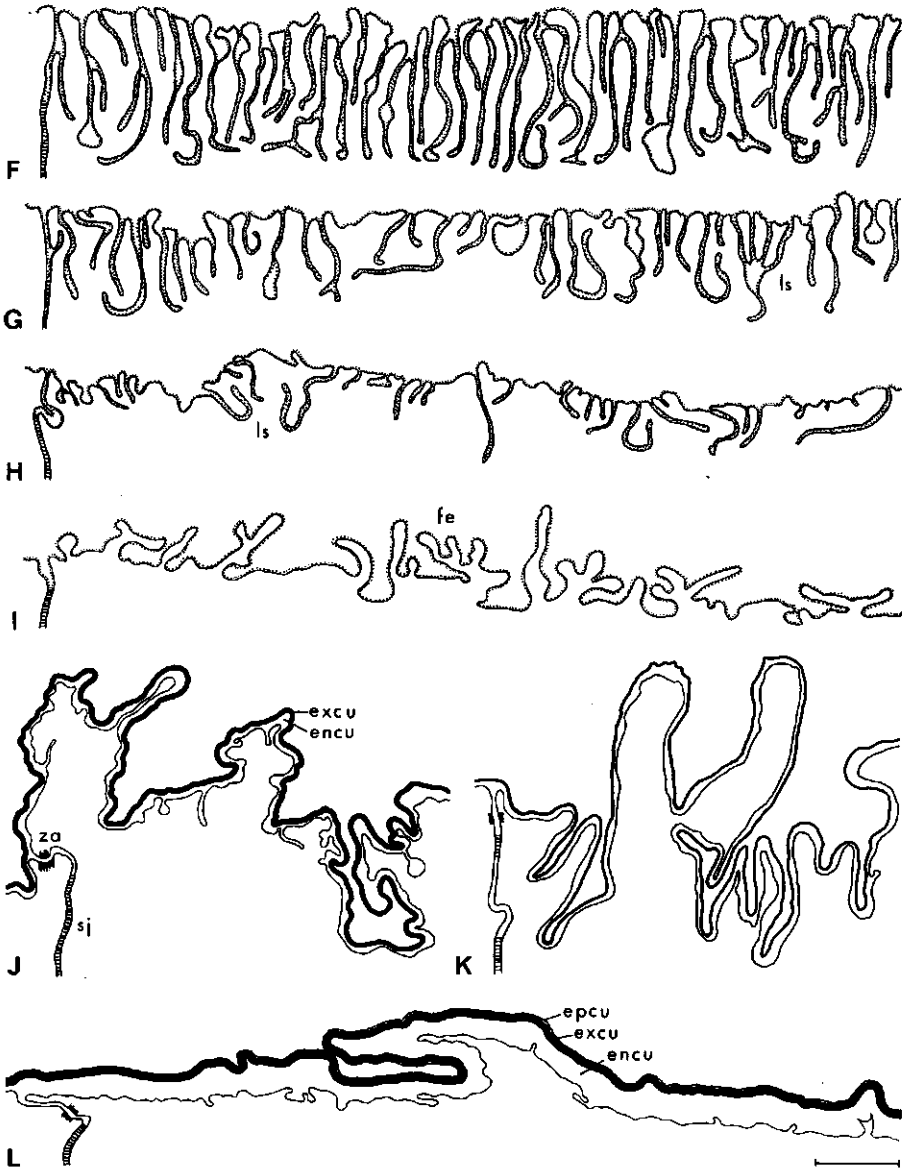 F
ls
G
ls
H
fe
I
excu
encu
za
sj
J
K
epcu
excu
encu
L